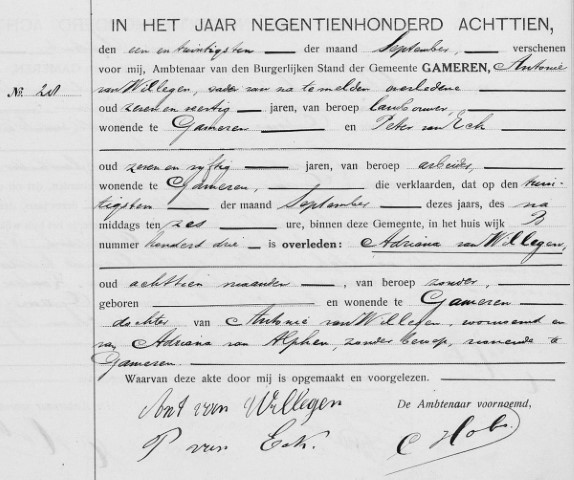 IN HET JAAR NEGENTIENHONDERD ACHTTIEN,
den een en twintigsten der maand September, verschenen
voor mij, Ambtenaar van den Burgerlijken Stand der Gemeente GAMEREN, Antonie
No. 28 van Willegen, vader van na te melden overledene
oud zeven en veertig jaren, van beroep landbouwer,
wonende te Gameren en Peter van Eck
oud zeven en vijftig jaren, van beroep arbeider,
wonende te Gameren, die verklaarden, dat op den twin-
tigsten der maand September dezes jaars, des na
middags ten zes ure, binnen deze Gemeente, in het huis wijk B
nummer honderd drie is overleden: Adriana van Willegen,
oud achttien maanden, van beroep zonder,
geboren en wonende te Gameren
dochter van Antonie van Willegen, voornoemd en
van Adriana van Alphen, zonder beroep, wonende te
Gameren.
Waarvan deze akte door mij is opgemaakt en voorgelezen.
Ant van Willegen De Ambtenaar voornoemd,
P van Eck. C Hobo